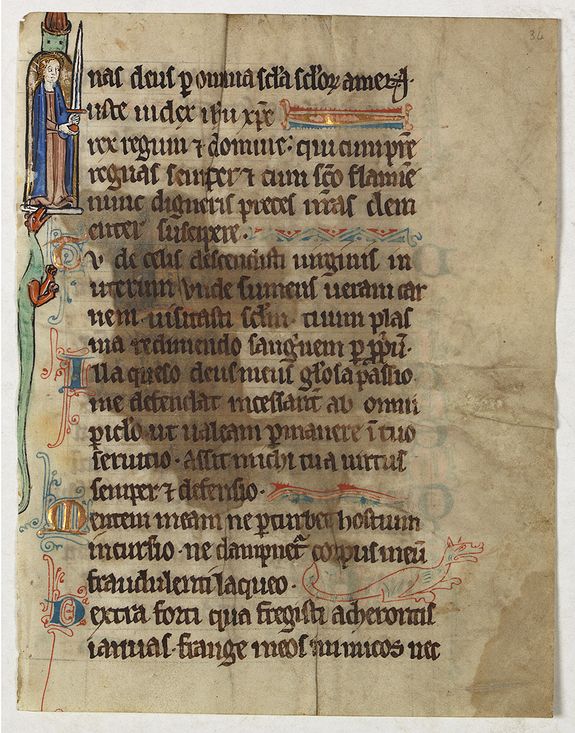 34
nas deus p omnia scła scłoꝝ amen.
uste iudex ihu xp̄e
rex regum ⁊ domine: qui cum pr̄e
regnas semper ⁊ cum sc̄o flamine
nunc digneris preces meas clem
enter suscipere.
Tu de celis descendisti uirginis in
uterum unde sumens ueram car
nem uisitasti sclm̄ tuum plas
ma redimendo sangnem p pp̄u.
Illa queso deus meus glosa passio
me defendat incessant ab omni
piclo ut ualeam pmanere ī tuo
seruitio. Assit michi tua uirtus
semper ⁊ defensio.
Mentem meam ne pturbet hostium
incursio. ne dampnet corpus meū
fraudulenti laqueo.
Dextra forti qua fregisti acherontis
ianuas. frange meos inimicos nec